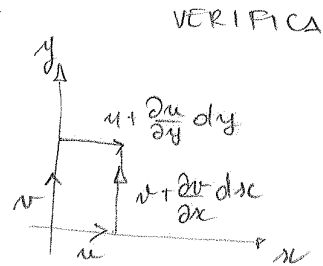 VERIFICA
y
u + ∂u/∂y dy
v
v + ∂v/∂x dx
u
x